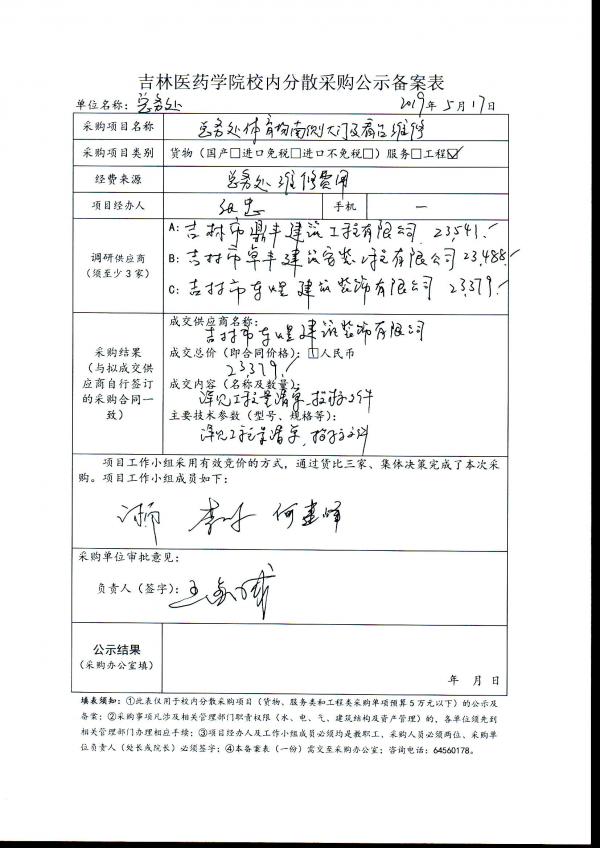 吉林医药学院校内分散采购公示备案表
单位名称：总务处 2019年5月17日
采购项目名称 总务处体育场南侧大门及看台维修
采购项目类别 货物（国产□进口免税□进口不免税□）服务□工程☑
经费来源 总务处维修费用
项目经办人 手机 —
调研供应商
（须至少3家）
A：吉林市鼎丰建筑工程有限公司 23,541.-
B：吉林市卓丰建筑安装工程有限公司 23,488.-
C：吉林市 建筑装饰有限公司 23,379.-
采购结果
（与拟成交供
应商自行签订
的采购合同一
致）
成交供应商名称：
吉林市 建筑装饰有限公司
成交总价（即合同价格）：□人民币
23,379.-
成交内容（名称及数量）：
详见工程量清单、投标文件
主要技术参数（型号、规格等）：
详见工程量清单、投标文件
项目工作小组采用有效竞价的方式，通过货比三家、集体决策完成了本次采
购。项目工作小组成员如下：
何建峰
采购单位审批意见：
负责人（签字）：
公示结果
（采购办公室填）
年 月 日
填表须知：①此表仅用于校内分散采购项目（货物、服务类和工程类采购单项预算5万元以下）的公示及
备案；②采购事项凡涉及相关管理部门职责权限（水、电、气、建筑结构及资产管理）的，各单位须先到
相关管理部门办理相应手续；③项目经办人及工作小组成员必须均是教职工、采购人员必须两位、采购单
位负责人（处长或院长）必须签字；④本备案表（一份）需交至采购办公室；咨询电话：64560178。